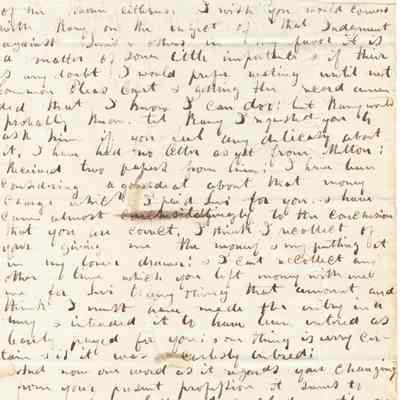 of the whom citizens. I wish you would convers
with Kany on the subject of that Judgment
against Lewis & others in my favor it is
a matter of some little importance & if there
is any doubt I would prefer waiting until next
common Pleas Court & getting the record amen
ded that I know I can do: but Kany would
probably know. tell Kany I requested you to
ask him if you feel any delicacy about
it, I have had no letter as yet from Milton:
Received two papers from him: I have been
considering a good deal about that money
charge which I paid Levi for you. & have
come almost to the conclusion
that you are correct, I think I recollect of
your giving me the money & my putting it
in my bureau drawer: & I cant recollect any
other time which you left money with me
for Levi that amount and
think I must have made the entry in a
& intended it to have been entered as
payed for you: one thing is very cer-
tain & it is entered:
And now one word as it regards your changing
from your present profession it seems to